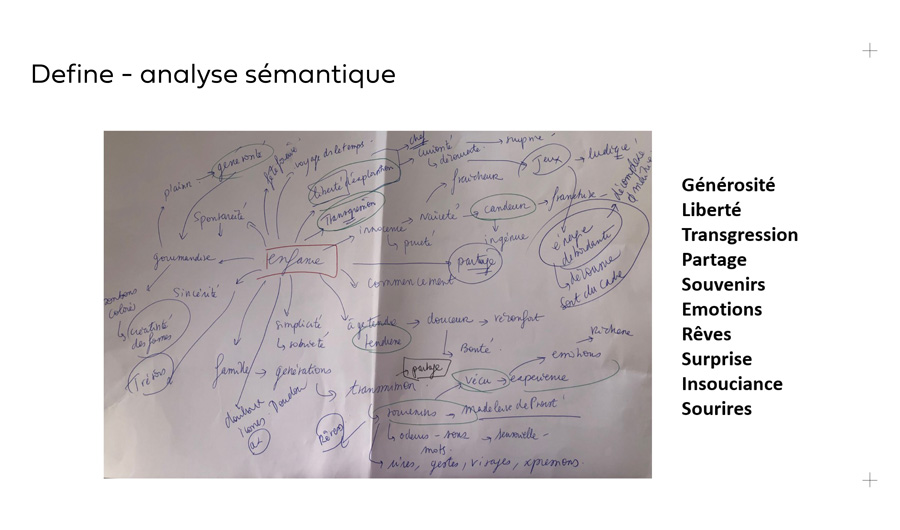 Define - analyse sémantique
chef
surprise
générosité
voyage ds le temps
curiosité
↳ découverte
Jeux → ludique
plaisir
liberté d'exploration
fraîcheur
Transgression
Spontanéité
innocence
naïveté
candeur
franchise
↳ pureté
ingénue
énergie
débordante
gourmandise
enfance
partage
détourne
sort du cadre
commencement
bonbons
colorés
Sincérité
↳ créativité
des formes
simplicité
âge tendre → douceur → réconfort
tendresse
Bonté
émotions
Richesse
partage
famille → générations
vécu → expérience
↳ transmission
Doudou
souvenirs → madeleine de Proust
Rêves
↳ odeurs - sons → sensorielle -
mots
rires, gestes, visages, expressions.
Générosité
Liberté
Transgression
Partage
Souvenirs
Emotions
Rêves
Surprise
Insouciance
Sourires